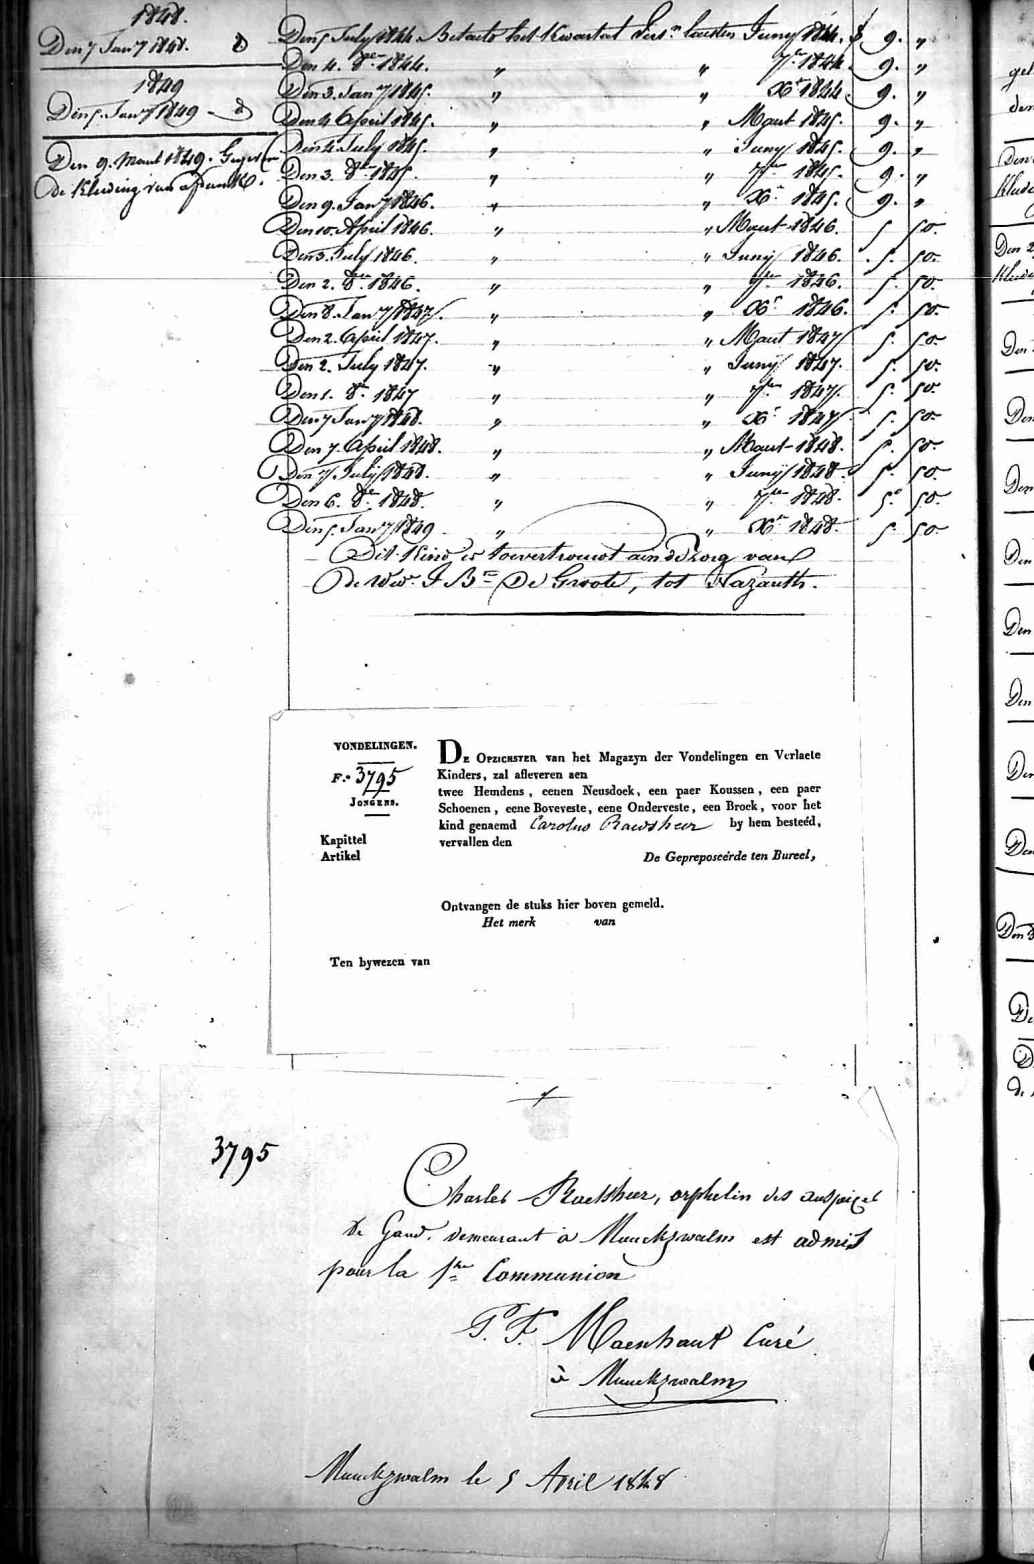 1848.
Den 7 Jan^y 1848. d
1849
Den 5. Jan^y 1849 d
Den 9. Maart 1849.
de kleeding van
Den 5 July 1844 Betaeld het kwartael laesten Juny 1844. f 9. "
Den 4. 8^re 1844. " " 7^bre 1844. 9. "
Den 3. Jan^y 1845. " " X^r 1844 9. "
Den 4. April 1845. " " Maart 1845. 9. "
Den 4. July 1845. " " Juny 1845. 9. "
Den 3. 8^re 1845. " " 7^bre 1845. 9. "
Den 9. Jan^y 1846. " " X^r 1845. 9. "
Den 10. April 1846. " " Maart 1846. 5 50.
Den 3. July 1846. " " Juny 1846. 5. 50.
Den 2. 8^re 1846. " " 7^bre 1846. 5. 50.
Den 8. Jan^y 1847. " " X^r 1846. 5. 50.
Den 2. April 1847. " " Maart 1847 5. 50
Den 2. July 1847. " " Juny 1847. 5. 50.
Den 1. 8^re 1847 " " 7^bre 1847. 5. 50.
Den 7 Jan^y 1848. " " X^r 1847 5. 50.
Den 7. April 1848. " " Maart 1848. 5. 50.
Den 7 July 1848. " " Juny 1848. 5. 50.
Den 6. 8^re 1848. " " 7^bre 1848. 5. 50.
Den 5. Jan^y 1849 " " X^r 1848. 5. 50.
Dit kind is toevertrouwt aen de zorg van
de Wed. J B^te De Groote, tot Nazareth.
VONDELINGEN.
F.° 3795
JONGENS.
Kapittel
Artikel
DE OPZICHSTER van het Magazyn der Vondelingen en Verlaete
Kinders, zal afleveren aen
twee Hemdens, eenen Neusdoek, een paer Koussen, een paer
Schoenen, eene Boveveste, eene Onderveste, een Broek, voor het
kind genaemd Carolus Raedsheer by hem besteéd,
vervallen den
De Gepreposeérde ten Bureel,
Ontvangen de stuks hier boven gemeld.
Het merk van
Ten bywezen van
3795
Charles Raetsheer, orphelin des auspices
de Gand, demeurant à Munckzwalm est admis
pour la 1^ère Communion
P. F. Maenhaut Curé
à Munckzwalm
Munckzwalm le 5 Avril 1848